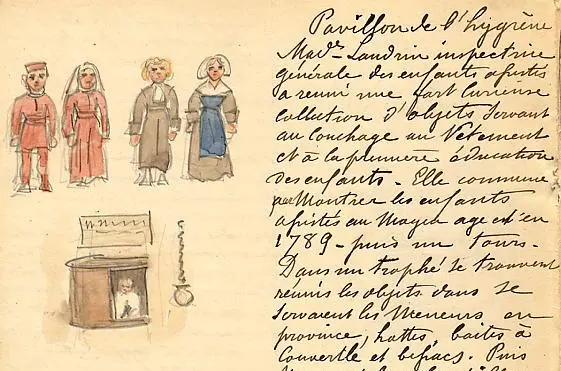 Pavillon de l'hygiène
Made Landrin inspectrice
générale des enfants assistés
a reuni une fort curieuse
collection d'objets servant
au Couchage au Vêtement
et à la première éducation
des enfants - Elle commence
par Montrer les enfants
assistés au Moyen age et en
1789 - puis un tours.
Dans un trophé se trouvent
réunis les objets dans se
servaient les Meneurs en
province, hottes, boites à
Couvercle et besaces. Puis